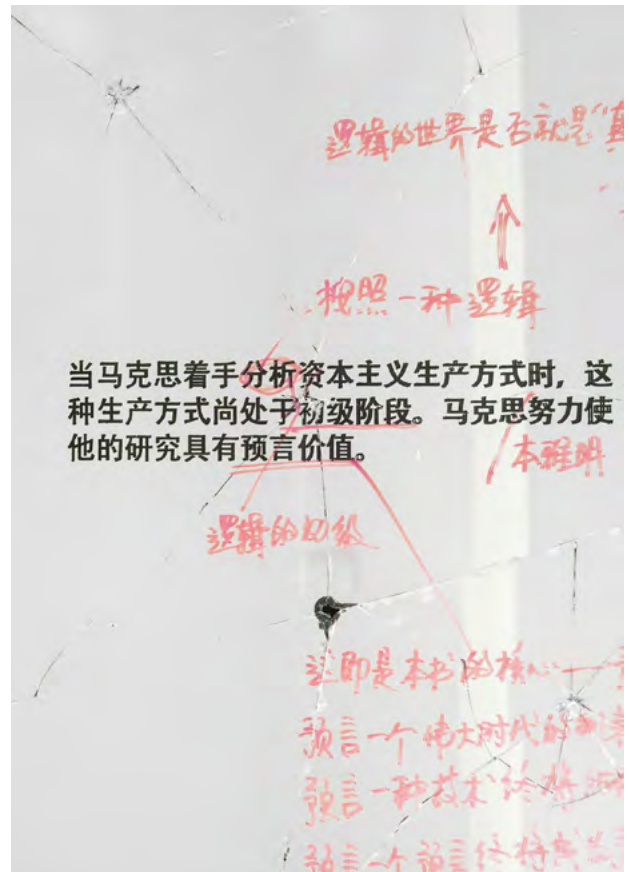 逻辑的世界是否就是“真
按照一种逻辑
当马克思着手分析资本主义生产方式时，这
种生产方式尚处于初级阶段。马克思努力使
他的研究具有预言价值。
本雅明
逻辑的初级
这即是本书的核心一
预言一个伟大时代的
预言一种技术终将
预言一个预言终将